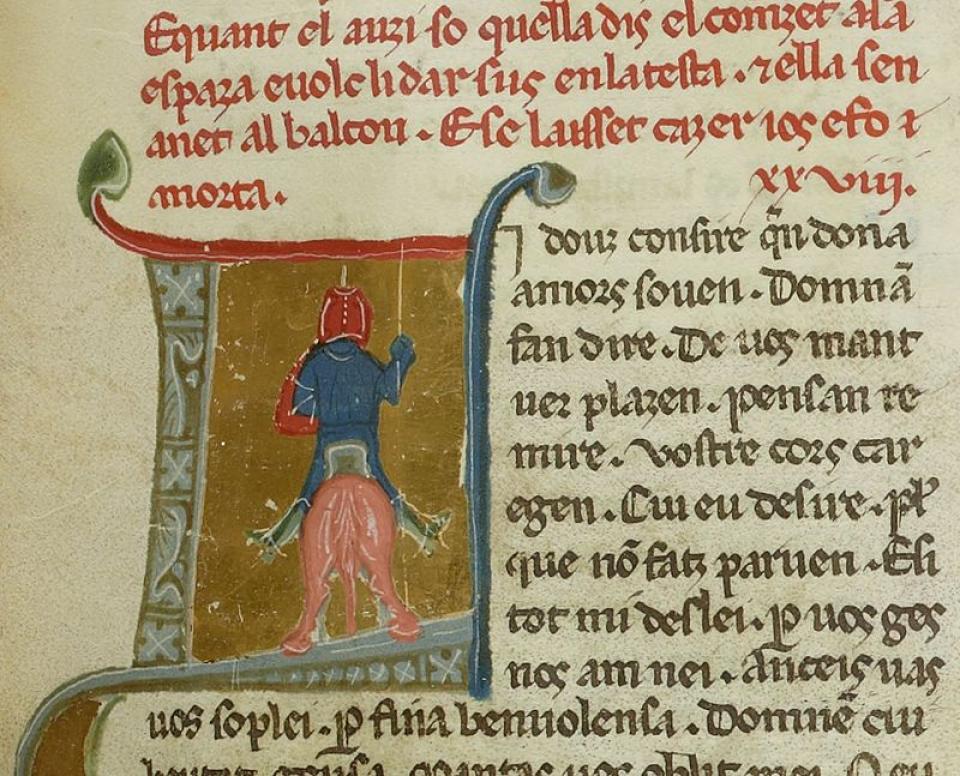 Equant el auzi so quella dis el comzet ala
espaza euolc li dar sus en la testa . ⁊ ella sen
anet al balcon . E se laisset cazer ios e fo
morta .
xxviii.
douz consire q̄n dona
amors souen . Domnā
fan dire . De uos mant
uer plazen . pensan re
mire . Vostre cors car
egen . Cui eu desire .
que nō fatz paruen . Eli
tot mi deslei . ꝑ uos ges
nos am nei . Anceis uas
uos soplei . ꝑ fina benuolensa . Domnē cui